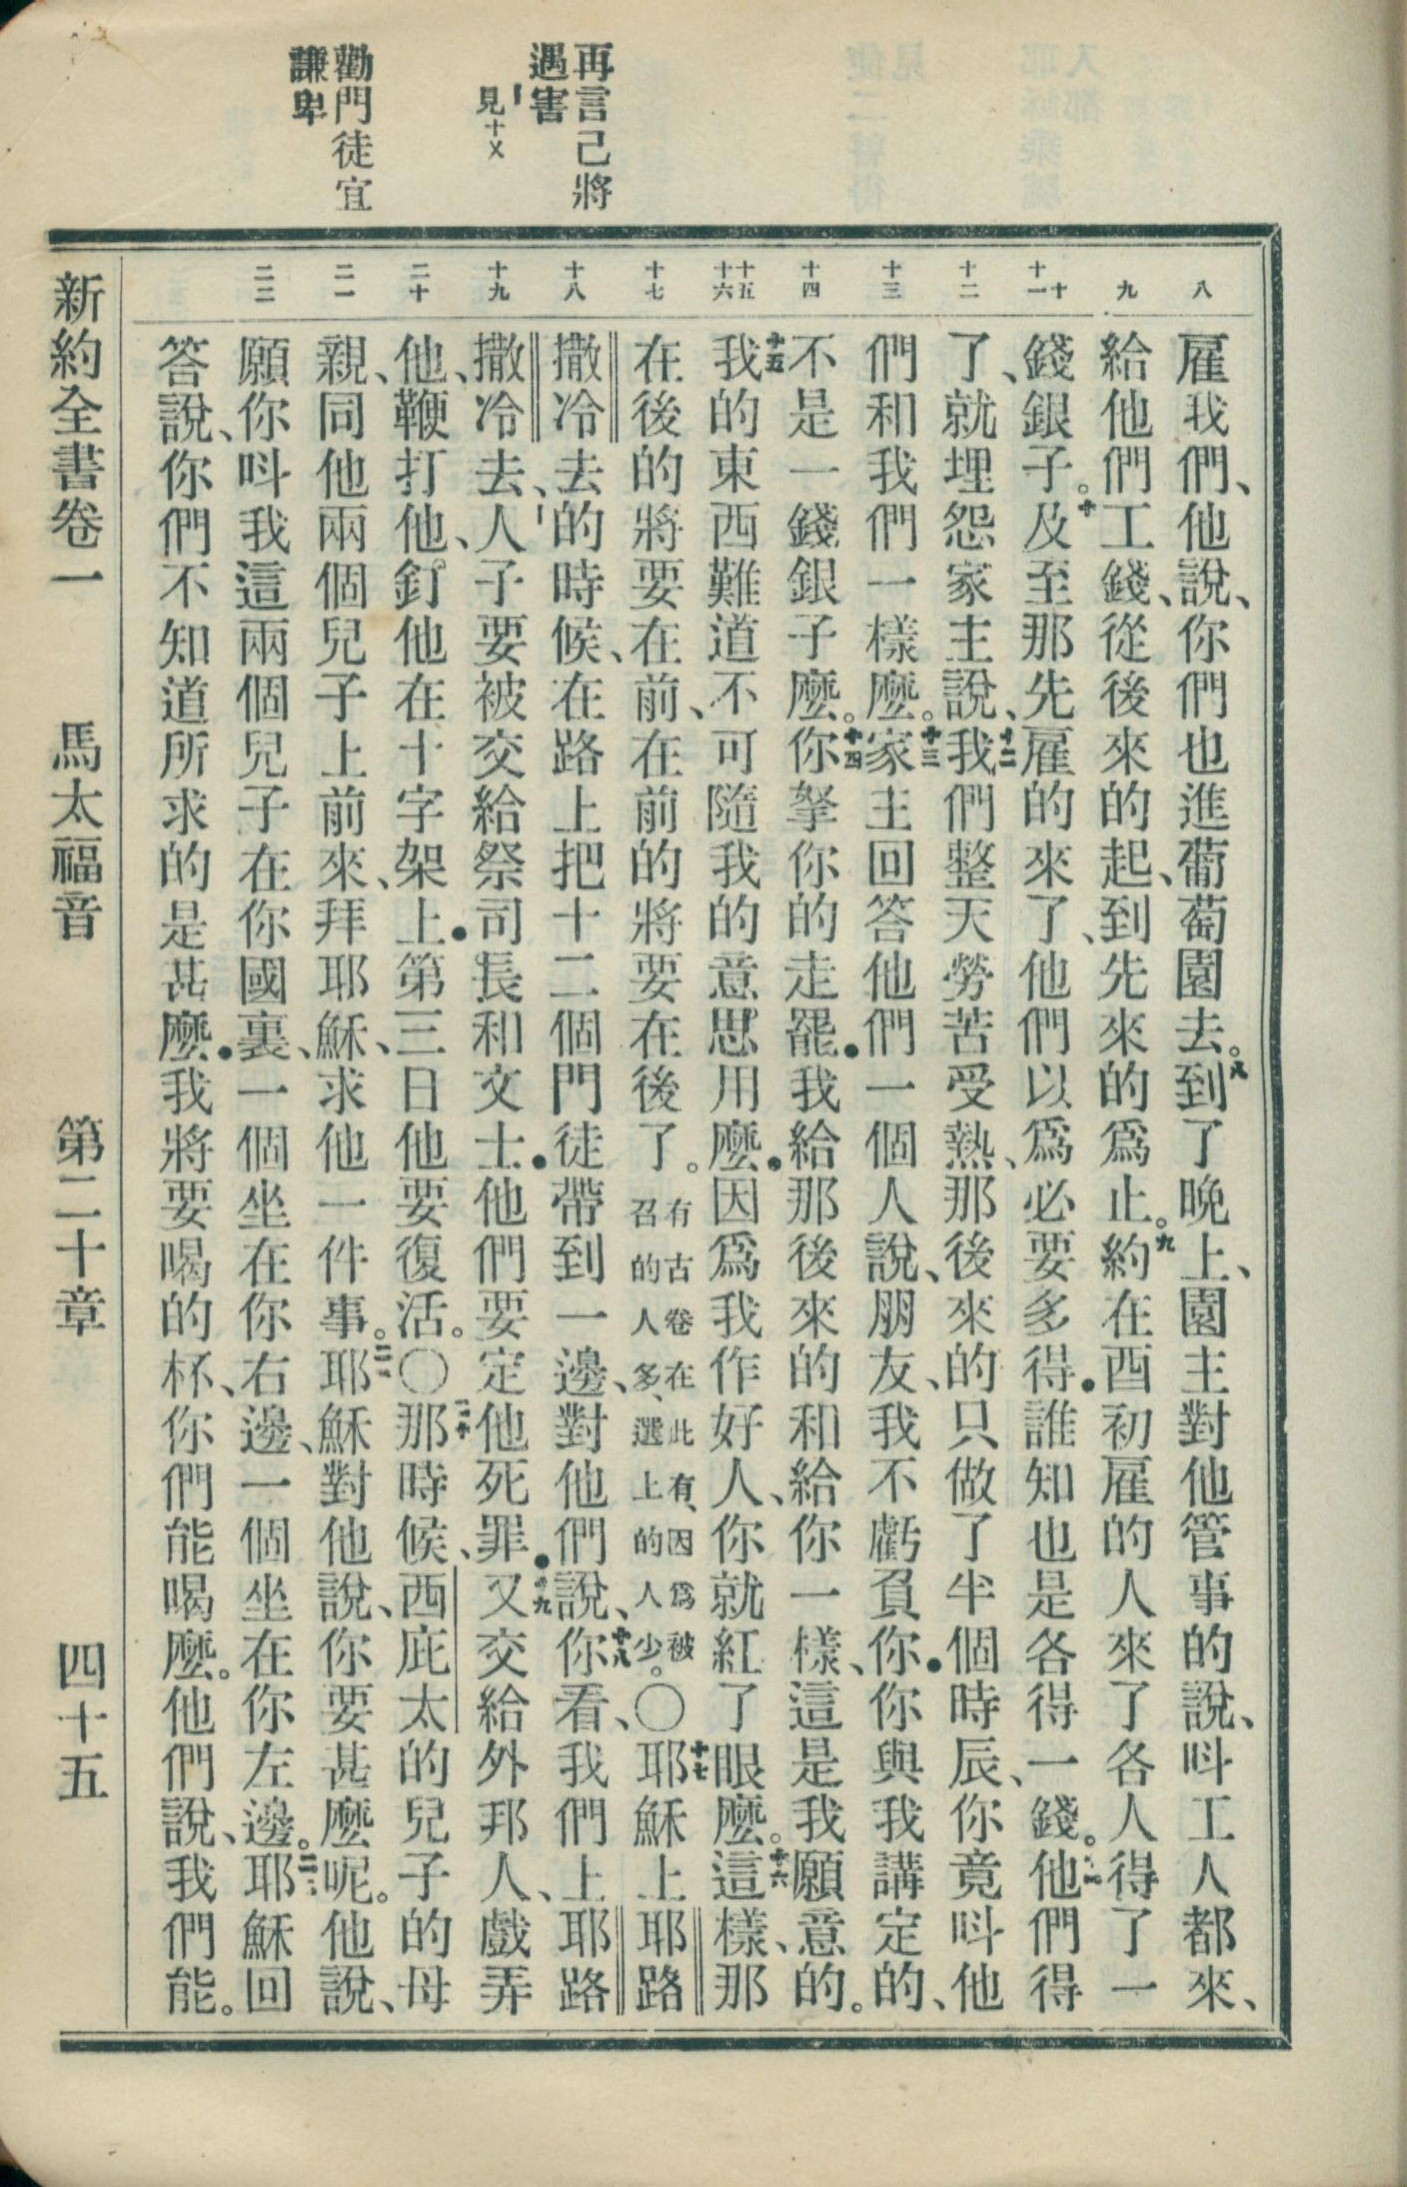 再言己將
遇害
見十乂
勸門徒宜
謙卑
八
九
十
十一
十二
十三
十四
十五
十六
十七
十八
十九
二十
二一
二二
雇我們、他說、你們也進葡萄園去。八到了晚上、園主對他管事的說、呌工人都來、
給他們工錢、從後來的起、到先來的爲止。九約在酉初雇的人來了各人得了一
錢銀子。十及至那先雇的來了、他們以爲必要多得．誰知也是各得一錢。十一他們得
了、就埋怨家主說、十二我們整天勞苦受熱、那後來的只做了半個時辰、你竟呌他
們和我們一樣麼。十三家主回答他們一個人說、朋友、我不虧負你．你與我講定的、
不是一錢銀子麼。十四你拏你的走罷．我給那後來的和給你一樣、這是我願意的。
十五我的東西難道不可隨我的意思用麼．因爲我作好人、你就紅了眼麼。十六這樣、那
在後的將要在前、在前的將要在後了。有古卷在此有、因爲被召的人多、選上的人少。〇十七耶穌上耶路
撒冷去的時候、在路上把十二個門徒帶到一邊、對他們說、十八你看、我們上耶路
撒冷去、人子要被交給祭司長和文士．他們要定他死罪．十九又交給外邦人、戲弄
他、鞭打他、釘他在十字架上．第三日他要復活。〇二十那時候、西庇太的兒子的母
親、同他兩個兒子上前來、拜耶穌、求他一件事。二一耶穌對他說、你要甚麼呢。他說、
願你呌我這兩個兒子在你國裏、一個坐在你右邊、一個坐在你左邊。二二耶穌回
答說、你們不知道所求的是甚麼．我將要喝的杯、你們能喝麼。他們說、我們能。
新約全書卷一 馬太福音 第二十章 四十五